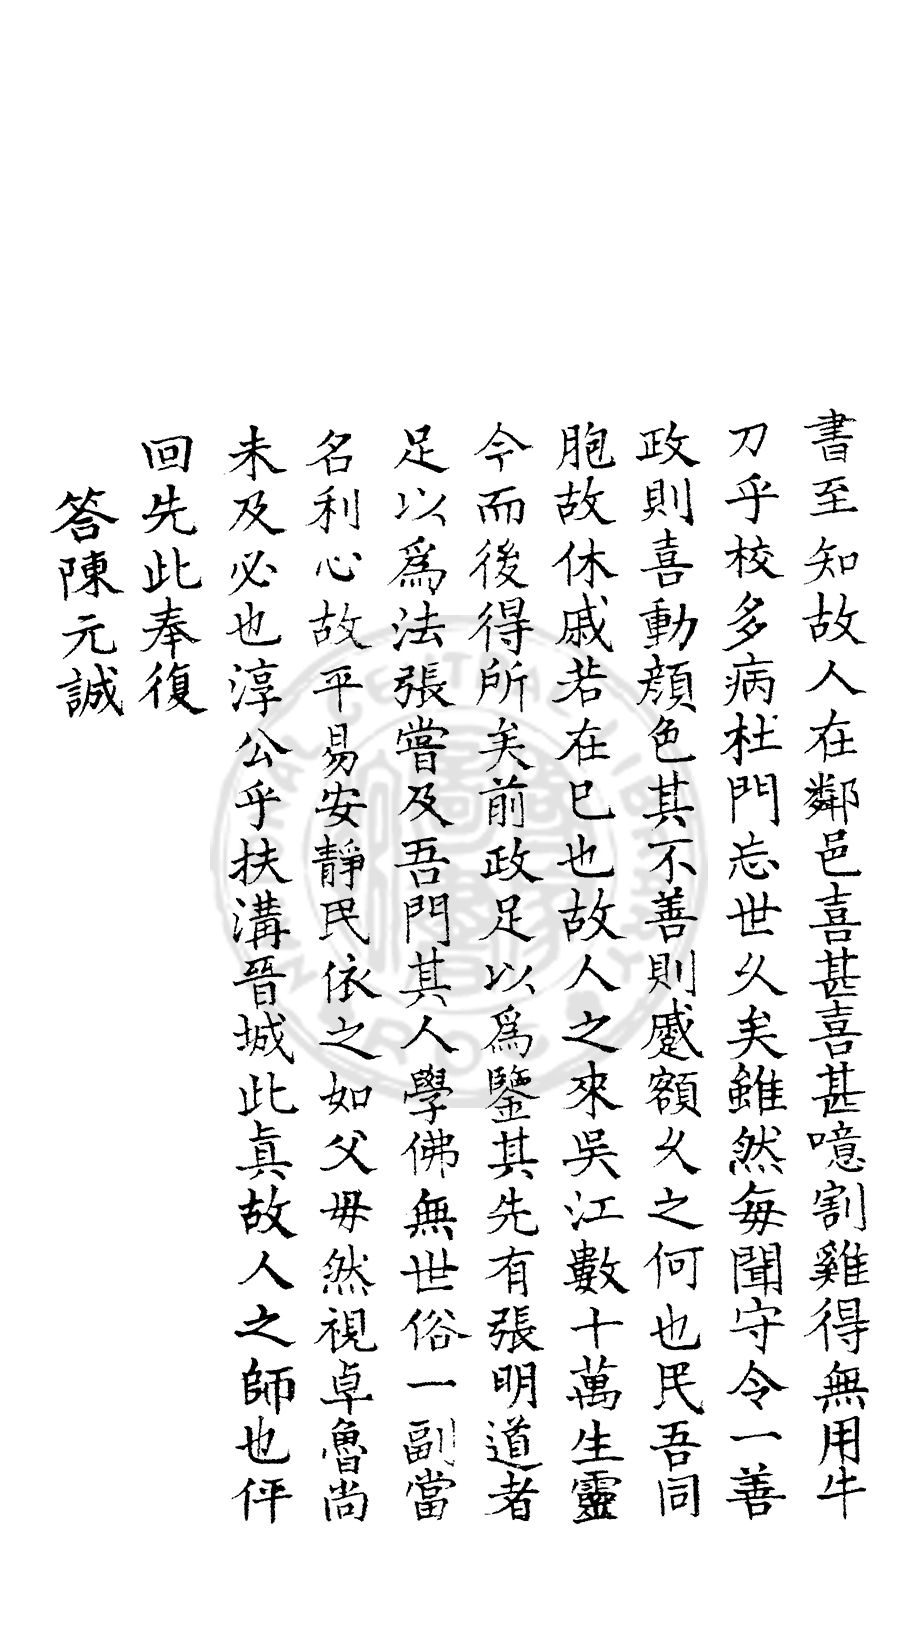 書至知故人在鄰邑喜甚喜甚噫割雞得無用牛
刀乎校多病杜門忘世久矣雖然每聞守令一善
政則喜動顔色其不善則蹙額久之何也民吾同
胞故休戚若在已也故人之來吳江數十萬生靈
今而後得所矣前政足以爲鑒其先有張明道者
足以爲法張嘗及吾門其人學佛無世俗一副當
名利心故平易安靜民依之如父毋然視卓魯尚
未及必也淳公乎扶溝晉城此眞故人之師也伻
回先此奉復
答陳元誠